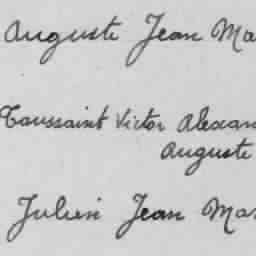 Auguste Jean Ma
Toussaint Victor Alexan
Auguste
Julien Jean Mar